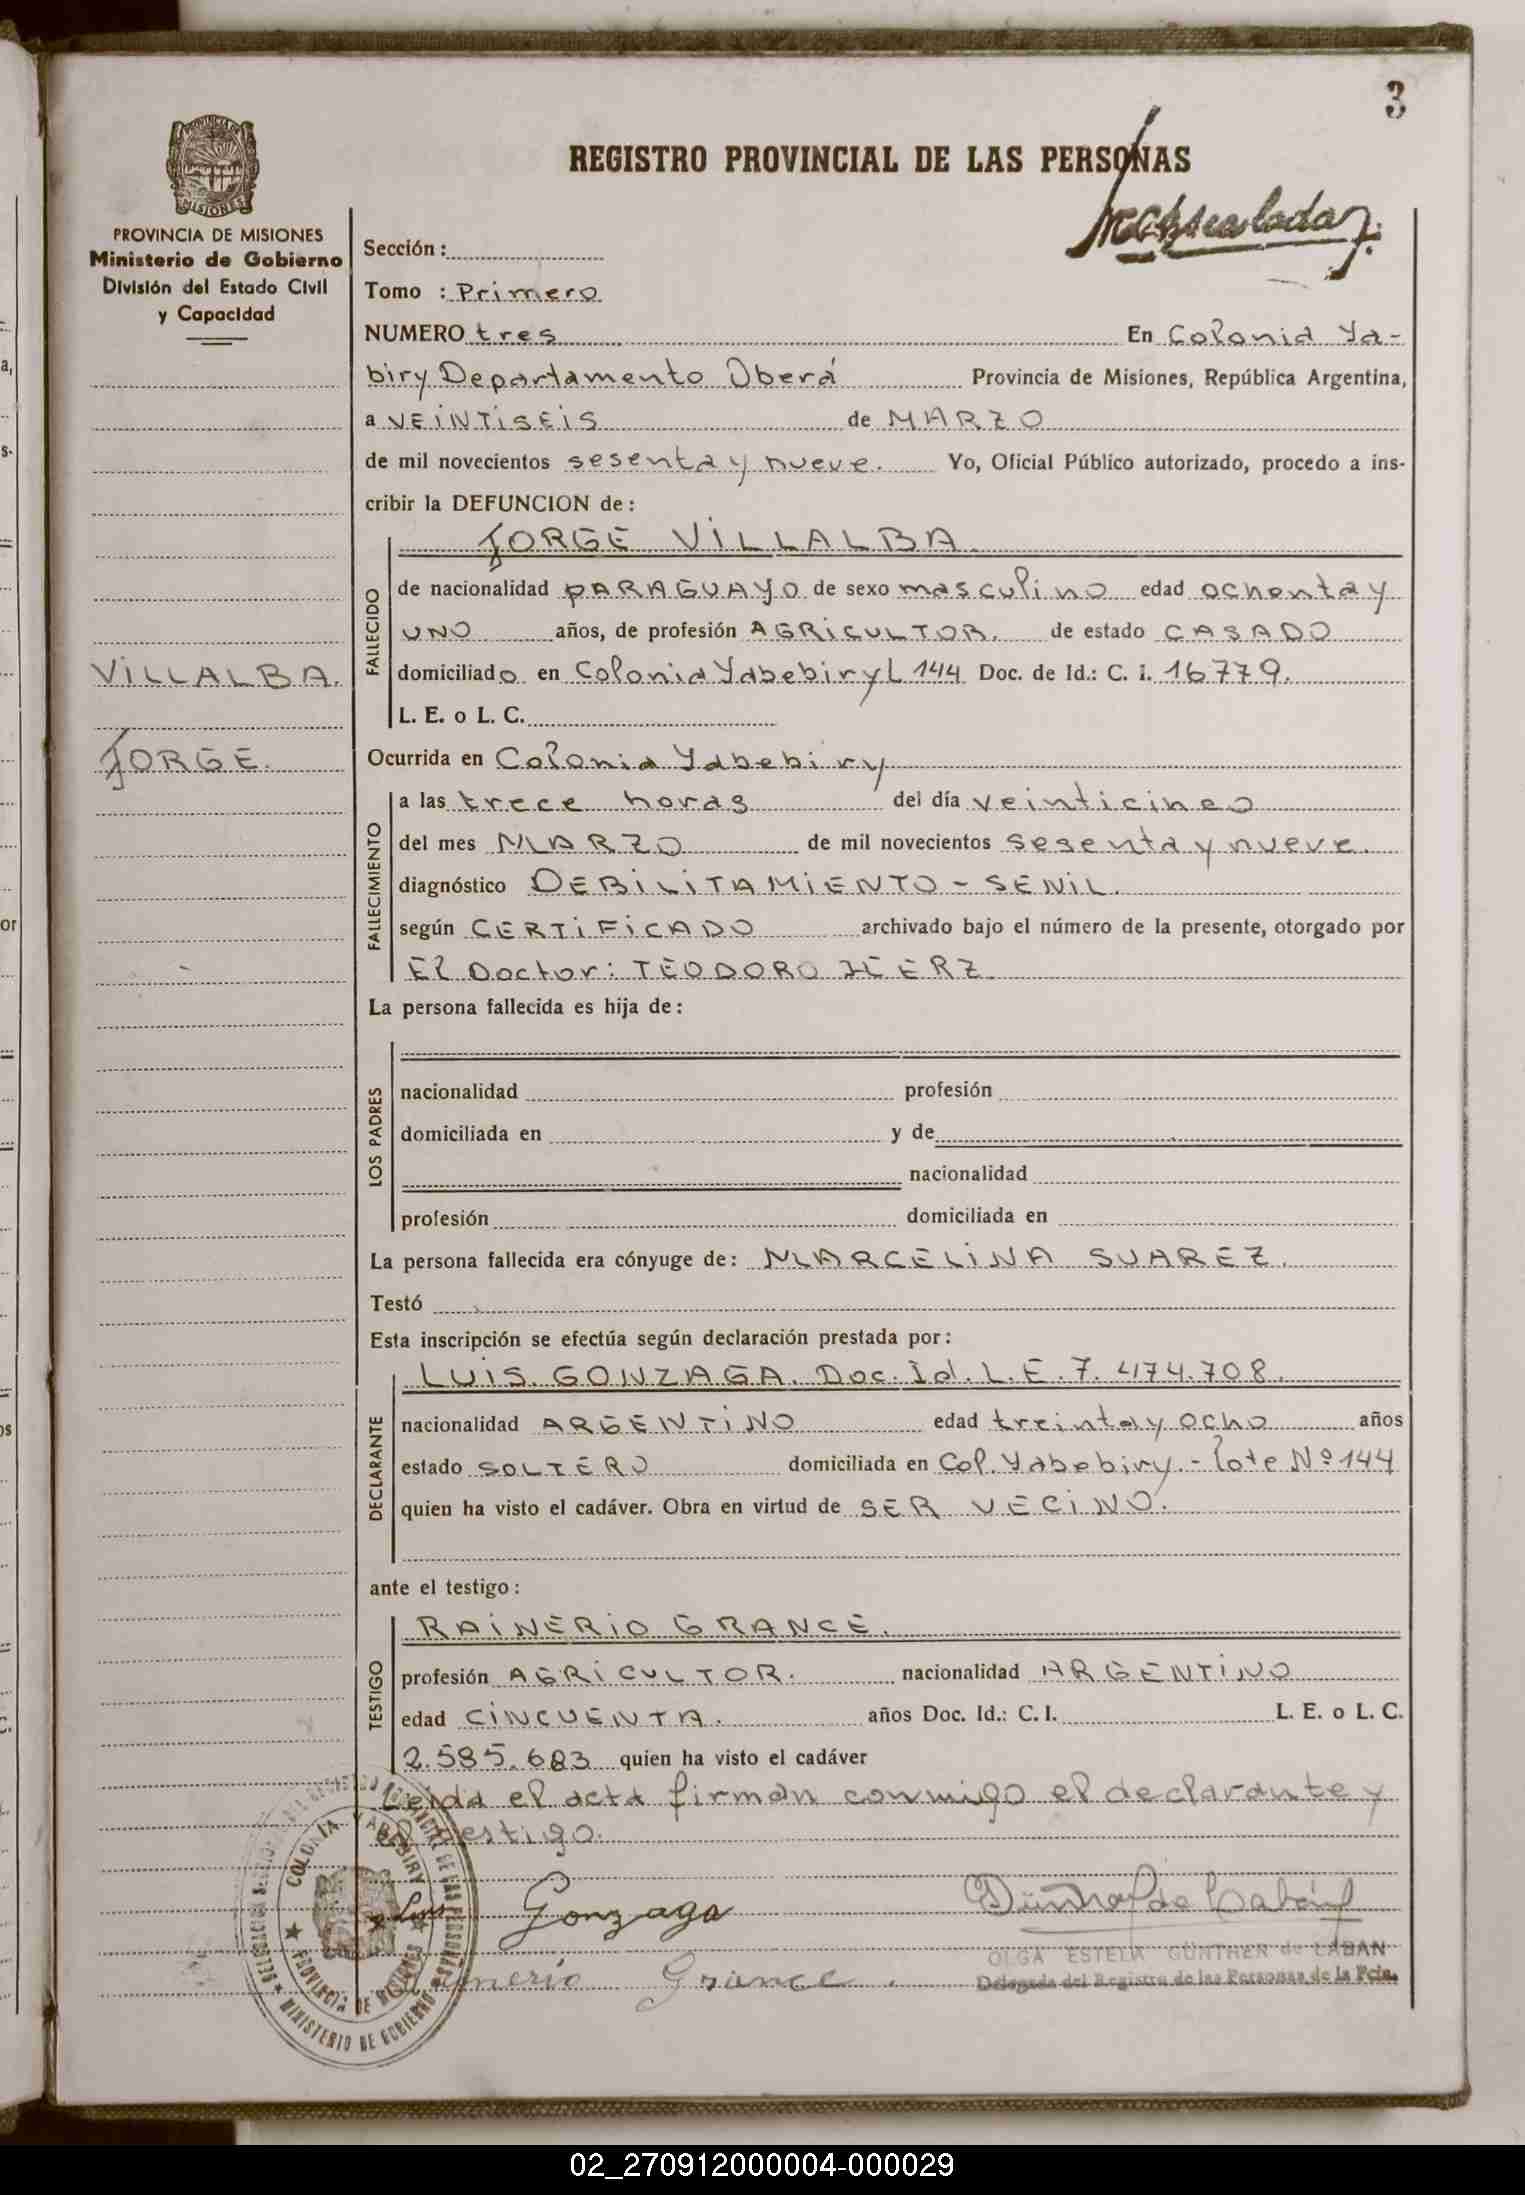 3
PROVINCIA DE MISIONES
Ministerio de Gobierno
División del Estado Civil
y Capacidad
REGISTRO PROVINCIAL DE LAS PERSONAS
Sección:
Tomo : Primero
NUMERO tres En Colonia Ya-
biry Departamento Oberá Provincia de Misiones, República Argentina,
a VEINTISEIS de MARZO
de mil novecientos sesenta y nueve. Yo, Oficial Público autorizado, procedo a ins-
cribir la DEFUNCION de:
JORGE VILLALBA.
FALLECIDO
de nacionalidad PARAGUAYO de sexo masculino edad ochenta y
UNO años, de profesión AGRICULTOR. de estado CASADO
VILLALBA.
domiciliado en Colonia Yabebiry L 144 Doc. de Id.: C. I. 16779.
L. E. o L. C.
JORGE.
Ocurrida en Colonia Yabebiry
FALLECIMIENTO
a las trece horas del día veinticinco
del mes MARZO de mil novecientos sesenta y nueve.
diagnóstico DEBILITAMIENTO - SENIL.
según CERTIFICADO archivado bajo el número de la presente, otorgado por
El Doctor: TEODORO HERZ.
La persona fallecida es hija de:
LOS PADRES
nacionalidad profesión
domiciliada en y de
nacionalidad
profesión domiciliada en
La persona fallecida era cónyuge de: MARCELINA SUAREZ.
Testó
Esta inscripción se efectúa según declaración prestada por:
LUIS. GONZAGA. Doc. Id. L. E. 7. 474.708.
DECLARANTE
nacionalidad ARGENTINO edad treinta y ocho años
estado SOLTERO domiciliada en Col. Yabebiry. - lote Nº 144
quien ha visto el cadáver. Obra en virtud de SER VECINO.
ante el testigo:
RAINERIO GRANCE.
TESTIGO
profesión AGRICULTOR. nacionalidad ARGENTINO
edad CINCUENTA. años Doc. Id.: C. I. L. E. o L. C.
2.585.683 quien ha visto el cadáver
Leída el acta firman conmigo el declarante y
el testigo.
COLONIA YABEBIRY
PROVINCIA DE MISIONES
MINISTERIO DE GOBIERNO
Luis Gonzaga
OLGA ESTELA GÜNTHER de LABAN
Delegada del Registro de las Personas de la Pcia.
Rainerio Grance.
02_270912000004-000029